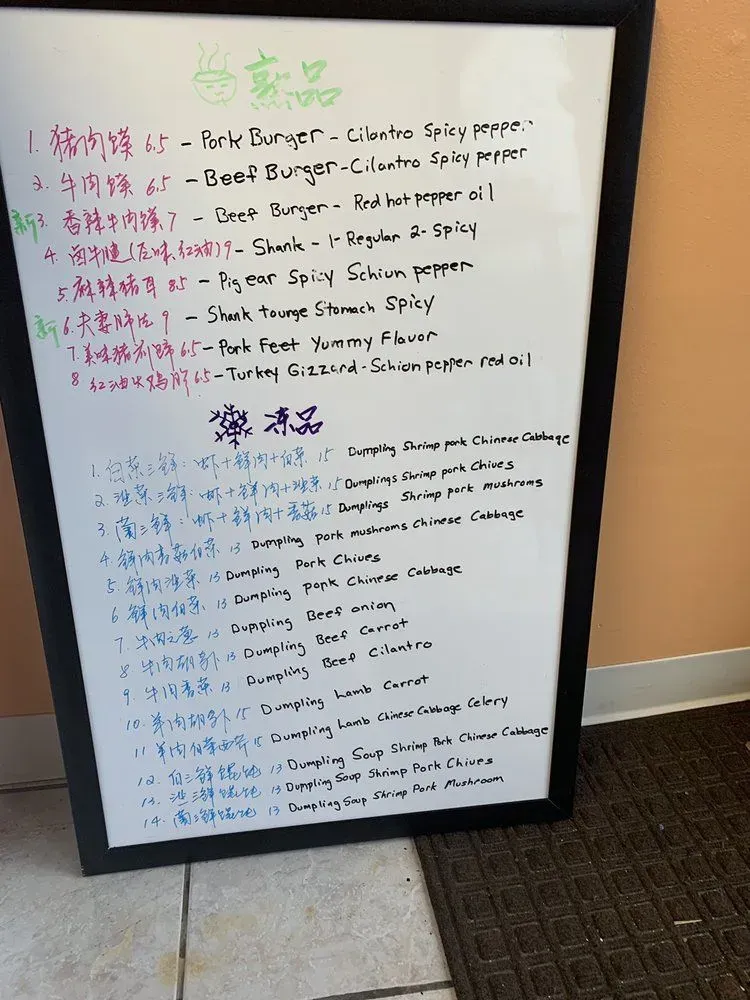 熟品
1. 猪肉馍 6.5 - Pork Burger - Cilantro Spicy pepper
2. 牛肉馍 6.5 - Beef Burger - Cilantro Spicy pepper
新 3. 香辣牛肉馍 7 - Beef Burger - Red hot pepper oil
4. 卤牛腱(五味.红油) 9 - Shank - 1- Regular 2- Spicy
5. 麻辣猪耳 8.5 - Pig ear Spicy Schiun pepper
新 6. 夫妻肺片 9 - Shank tounge Stomach Spicy
7. 美味猪前蹄 6.5 - Pork Feet Yummy Flavor
8. 红油火鸡胗 6.5 - Turkey Gizzard - Schiun pepper red oil
冻品
1. 白菜三鲜: 虾+鲜肉+白菜 15 Dumpling Shrimp pork Chinese Cabbage
2. 韭菜三鲜: 虾+鲜肉+韭菜 15 Dumplings Shrimp pork Chives
3. 菌三鲜: 虾+鲜肉+香菇 15 Dumplings Shrimp pork mushroms
4. 鲜肉香菇白菜 13 Dumpling pork mushroms Chinese Cabbage
5. 鲜肉韭菜 13 Dumpling Pork Chives
6 鲜肉白菜 13 Dumpling pork Chinese Cabbage
7. 牛肉大葱 13 Dumpling Beef onion
8 牛肉胡萝卜 13 Dumpling Beef Carrot
9. 牛肉香菜 13 Dumpling Beef Cilantro
10. 羊肉胡萝卜 15 Dumpling Lamb Carrot
11 羊肉白菜西芹 15 Dumpling Lamb Chinese Cabbage Celery
12. 白三鲜馄饨 13 Dumpling Soup Shrimp Pork Chinese Cabbage
13. 韭三鲜馄饨 13 Dumpling Soup Shrimp Pork Chives
14. 菌三鲜馄饨 13 Dumpling Soup Shrimp Pork Mushroom